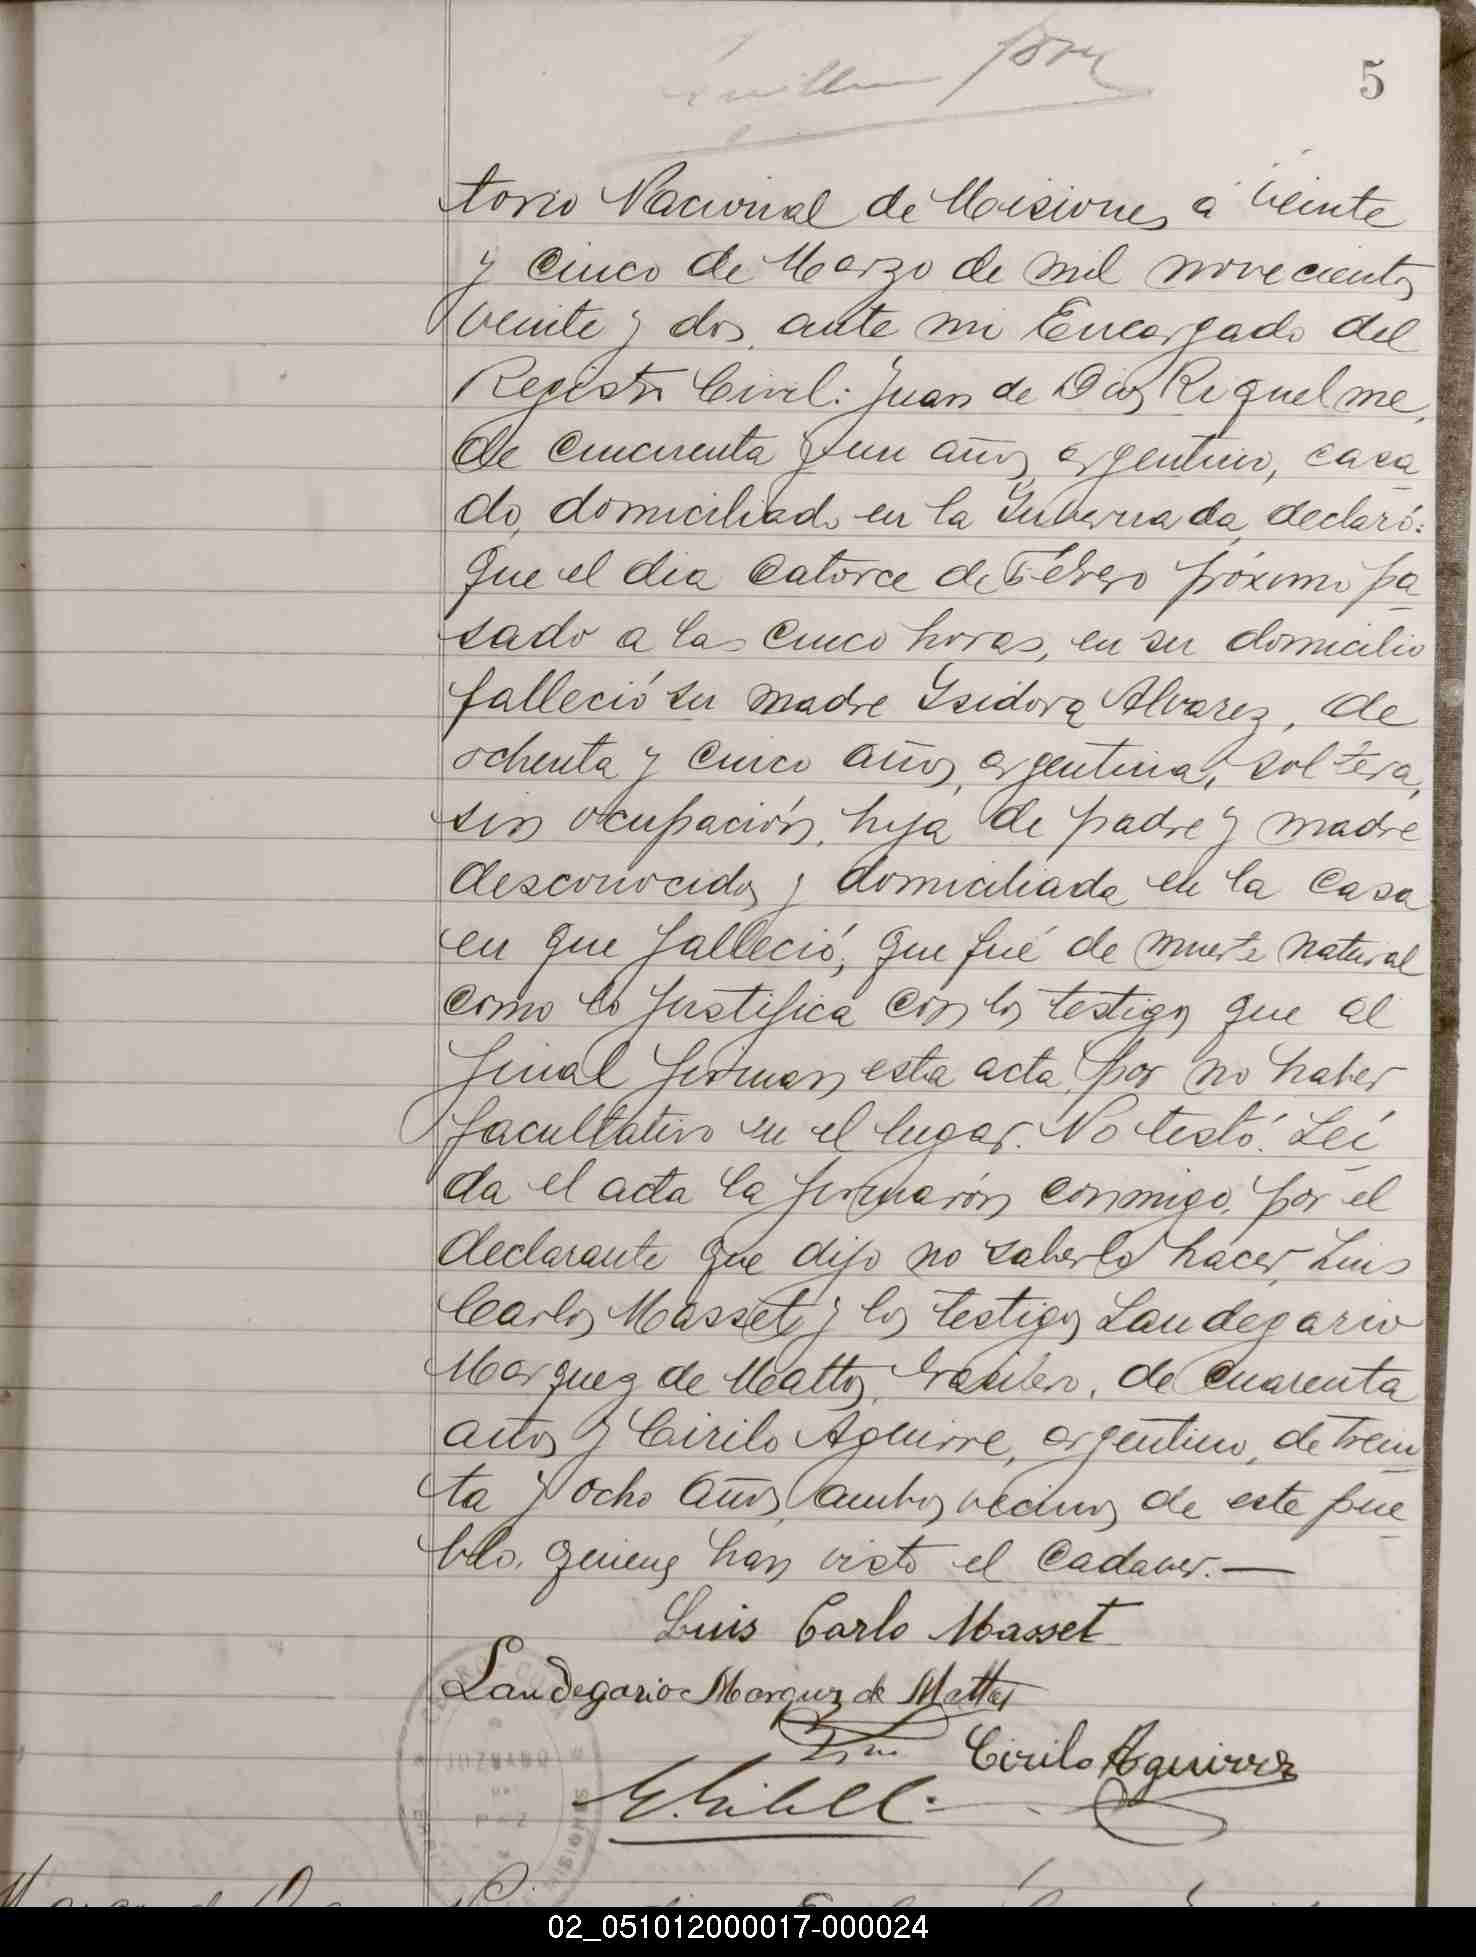 5
torio Nacional de Misiones, a veinte
y cinco de Marzo de mil novecientos
veinte y dos, ante mi Encargado del
Registro Civil: Juan de Dios Riquelme,
de cincuenta y un años, argentino, casa
do, domiciliado en la Gubernada, declaró:
Que el dia catorce de Febrero próximo pa
sado a las cinco horas, en su domicilio
falleció su madre Isidora Alvarez, de
ochenta y cinco años, argentina, soltera,
sin ocupación, hija de padre y madre
desconocidos y domiciliada en la casa
en que falleció; que fué de muerte natural
como lo justifica con los testigos que al
final firman esta acta, por no haber
facultativo en el lugar. No testó. Leí
da el acta la firmarón conmigo, por el
declarante que dijo no saberlo hacer, Luis
Carlos Masset y los testigos Laudegario
Marquez de Mattos, brasilero, de cuarenta
años y Cirilo Aguirre, argentino, de trein
ta y ocho años, ambos vecinos de este pue
blo, quienes han visto el cadaver.—
Luis Carlo Masset
Laudegario Marquez de Mattos
Cirilo Aguirre
JUZGADO
DE
PAZ
MISIONES
02_051012000017-000024